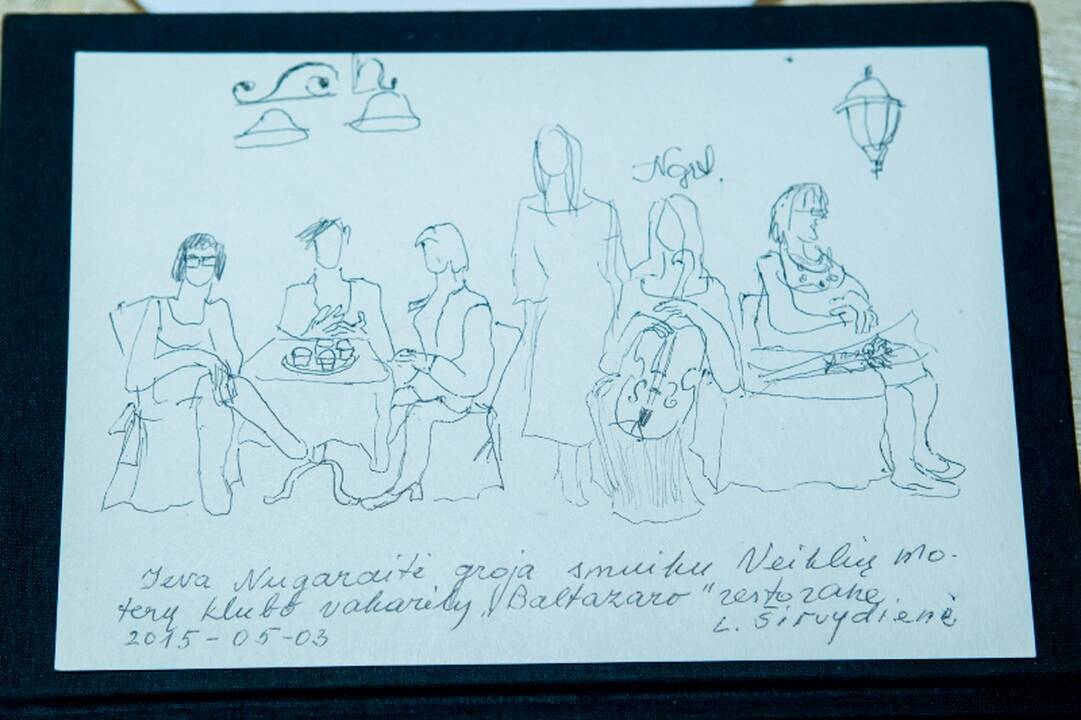 Ieva Nugaraitė groja smuiku Veiklių mo-
terų klubo vakarėly „Baltazaro" restorane
L. Širvydienė
2015-05-03